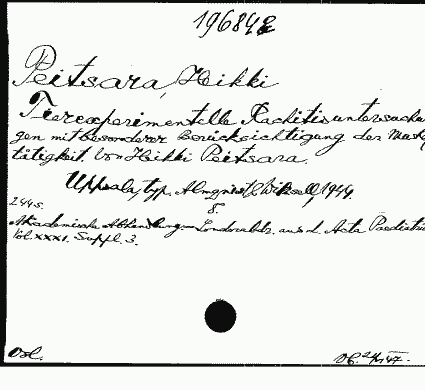 196842
Peitsara, Heikki
Tierexperimentelle Rachitisuntersuchun
gen mit besonderer Berücksichtigung der Musk
tätigkeit. Von Heikki Peitsara.
Uppsala, typ. Almqvist & Wiksell, 1944.
8.
244 s.
Akademische Abhandlung. Sonderabdr. aus d. Acta Paediatri
Vol. XXXI. Suppl. 3.
Osl.
47.